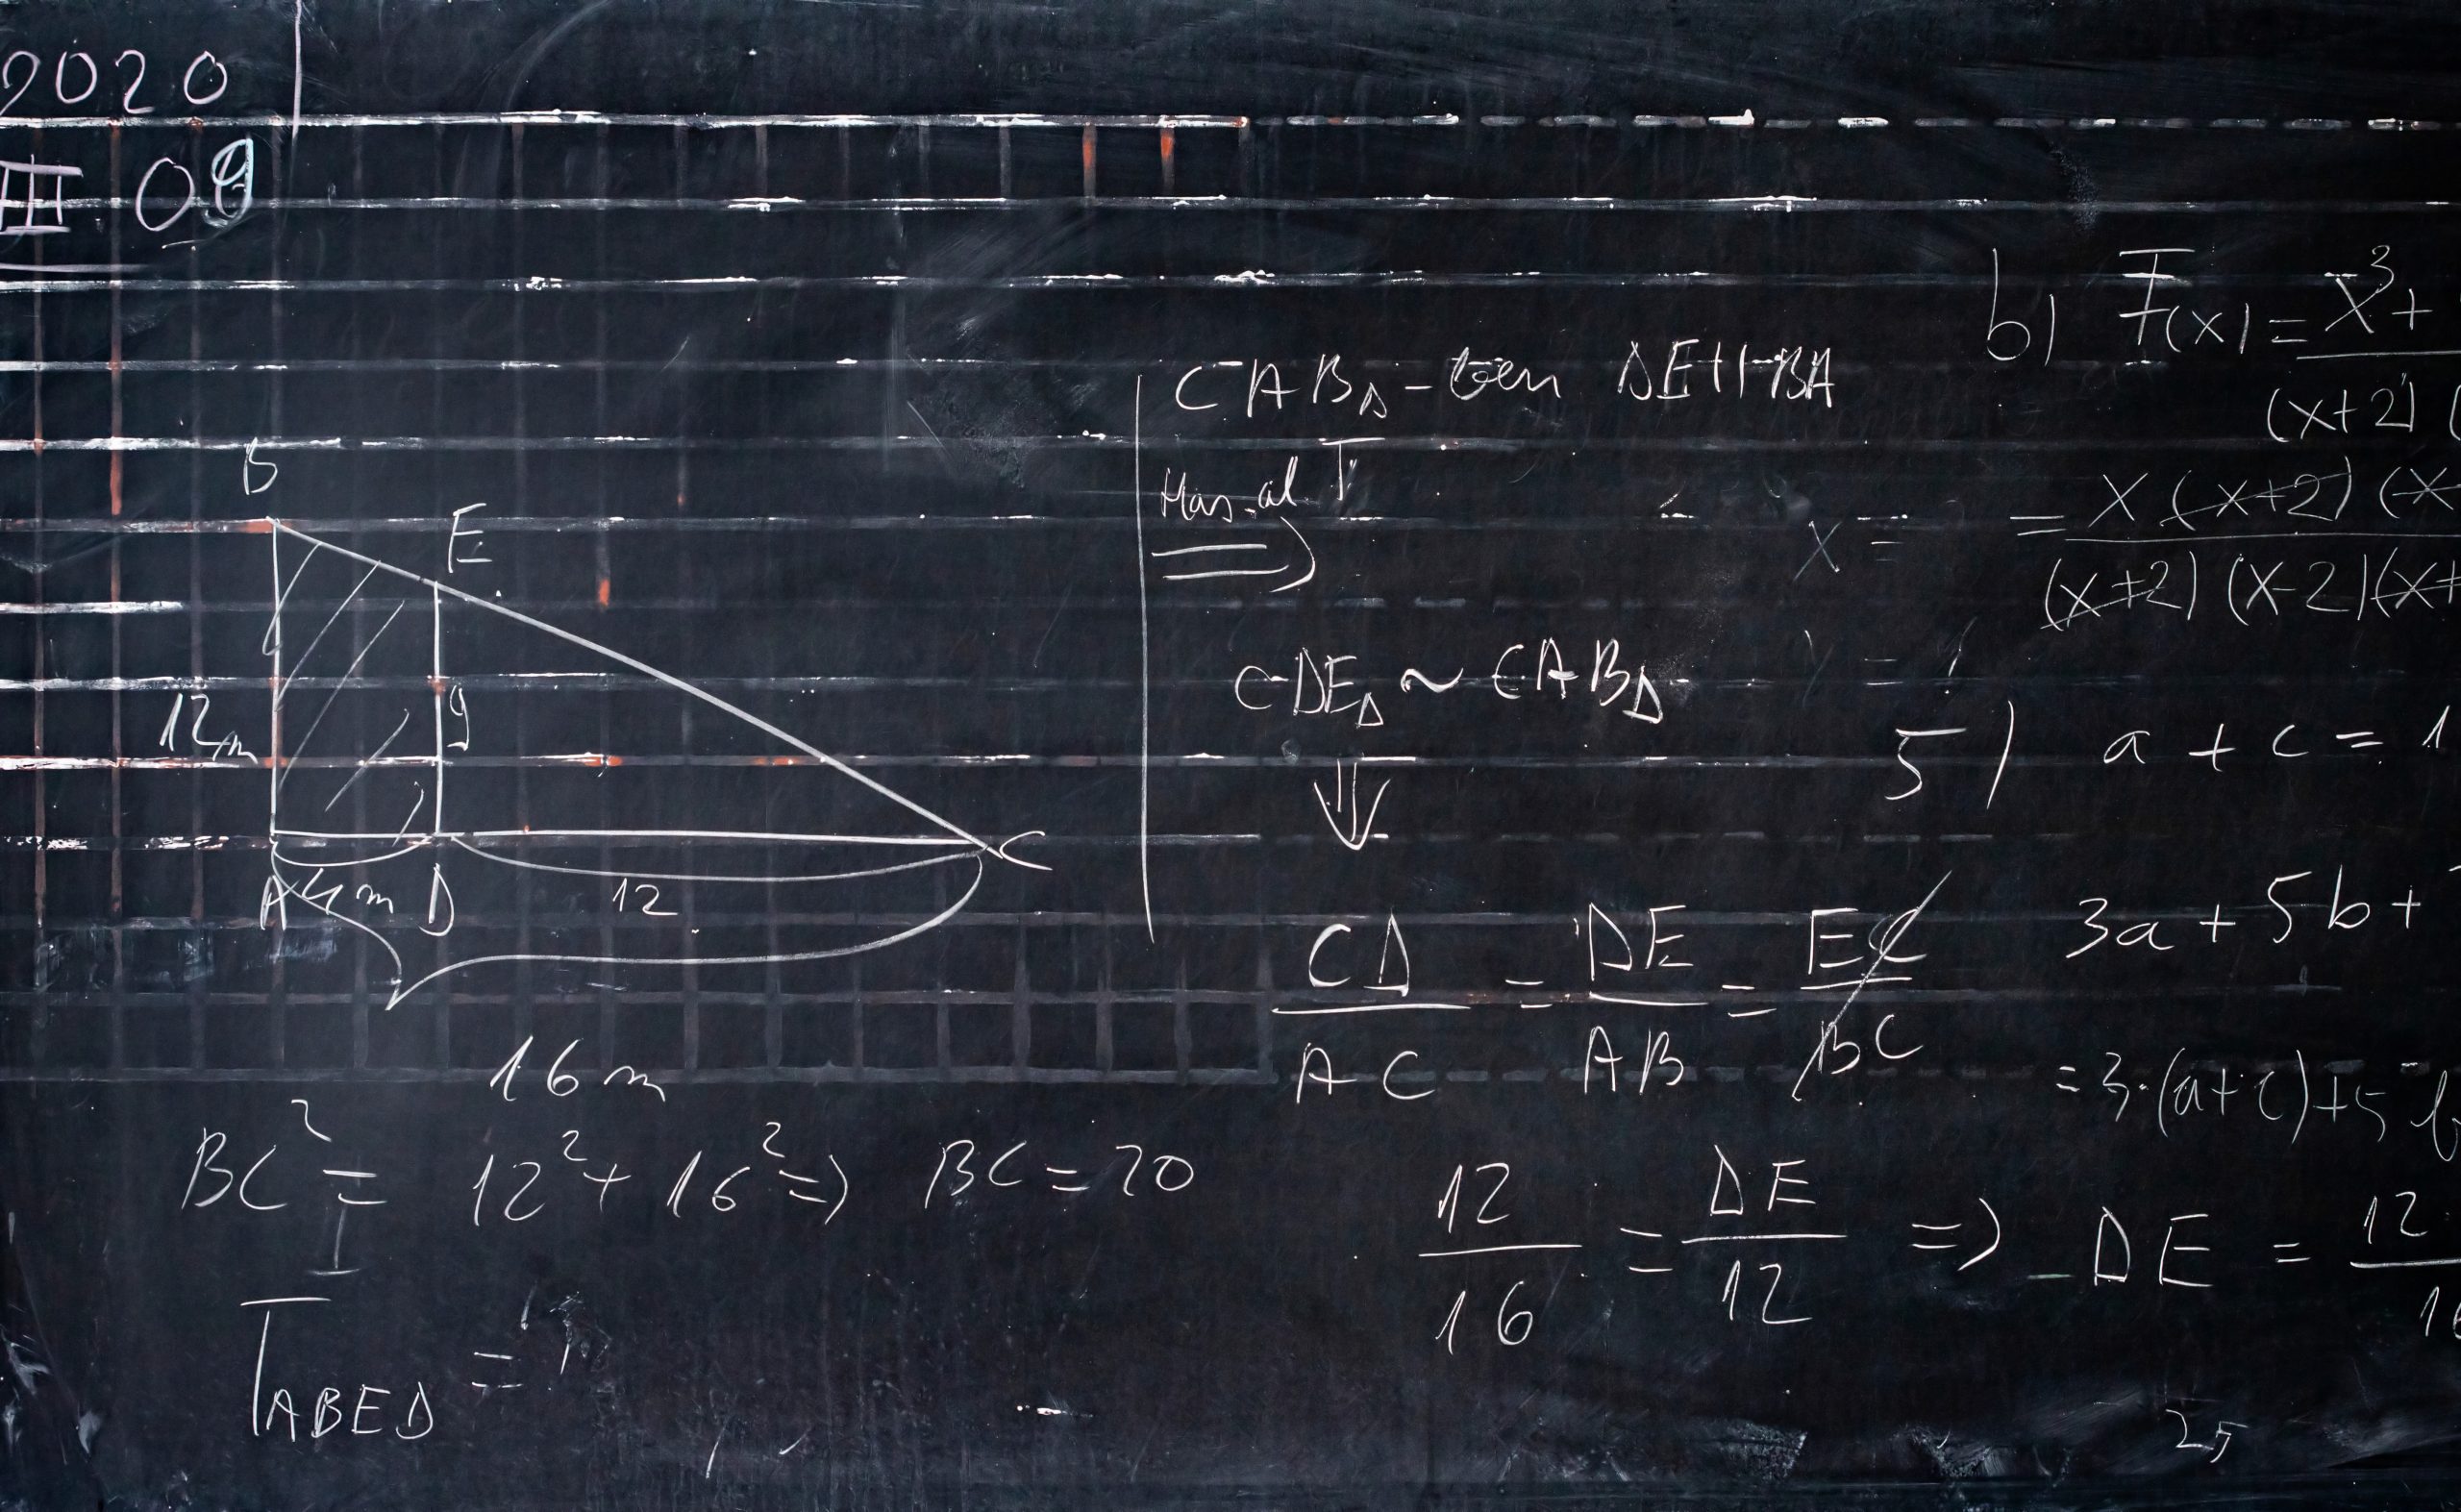 2020
III 09
B
E
12m
9
A 4m D
12
C
16m
BC² = 12² + 16² => BC = 20
T_ABED =
CAB△-ben DE || BA
Has. al T
=>
CDE△ ~ CAB△
⇓
CD/AC = DE/AB = EC/BC
12/16 = DE/12 => DE = 12
16
b) F(x) = x³ +
(x+2) (
x =
= x (x+2) (x
(x+2) (x-2)(x+
5) a + c = 1
3a + 5b +
= 3·(a+c)+5
25